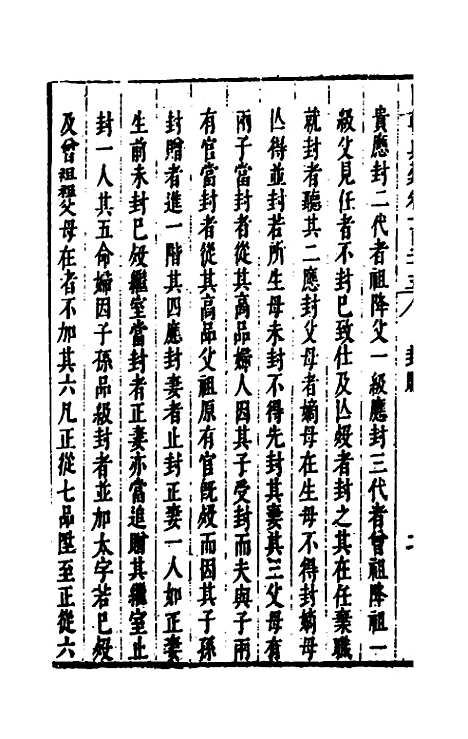 封贈
貴應封二代者祖降父一級應封三代者曾祖降祖一
級父見任者不封已致仕及亾歿者封之其在任棄職
就封者聽其二應封父母者嫡母在生母不得封嫡母
亾得並封若所生母未封不得先封其妻其三父母有
兩子當封者從其高品婦人因其子受封而夫與子兩
有官當封者從其高品父祖原有官旣歿而因其子孫
封贈者進一階其四應封妻者止封正妻一人如正妻
生前未封已歿繼室當封者正妻亦當追贈其繼室止
封一人其五命婦因子孫品級封者並加太字若已歿
及曾祖祖父母在者不加其六凡正從七品陞至正從六